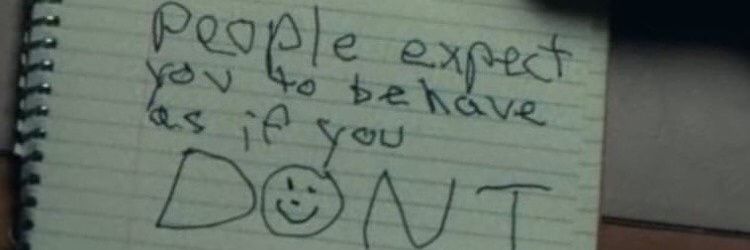 People expect
you to behave
as if you
DONT